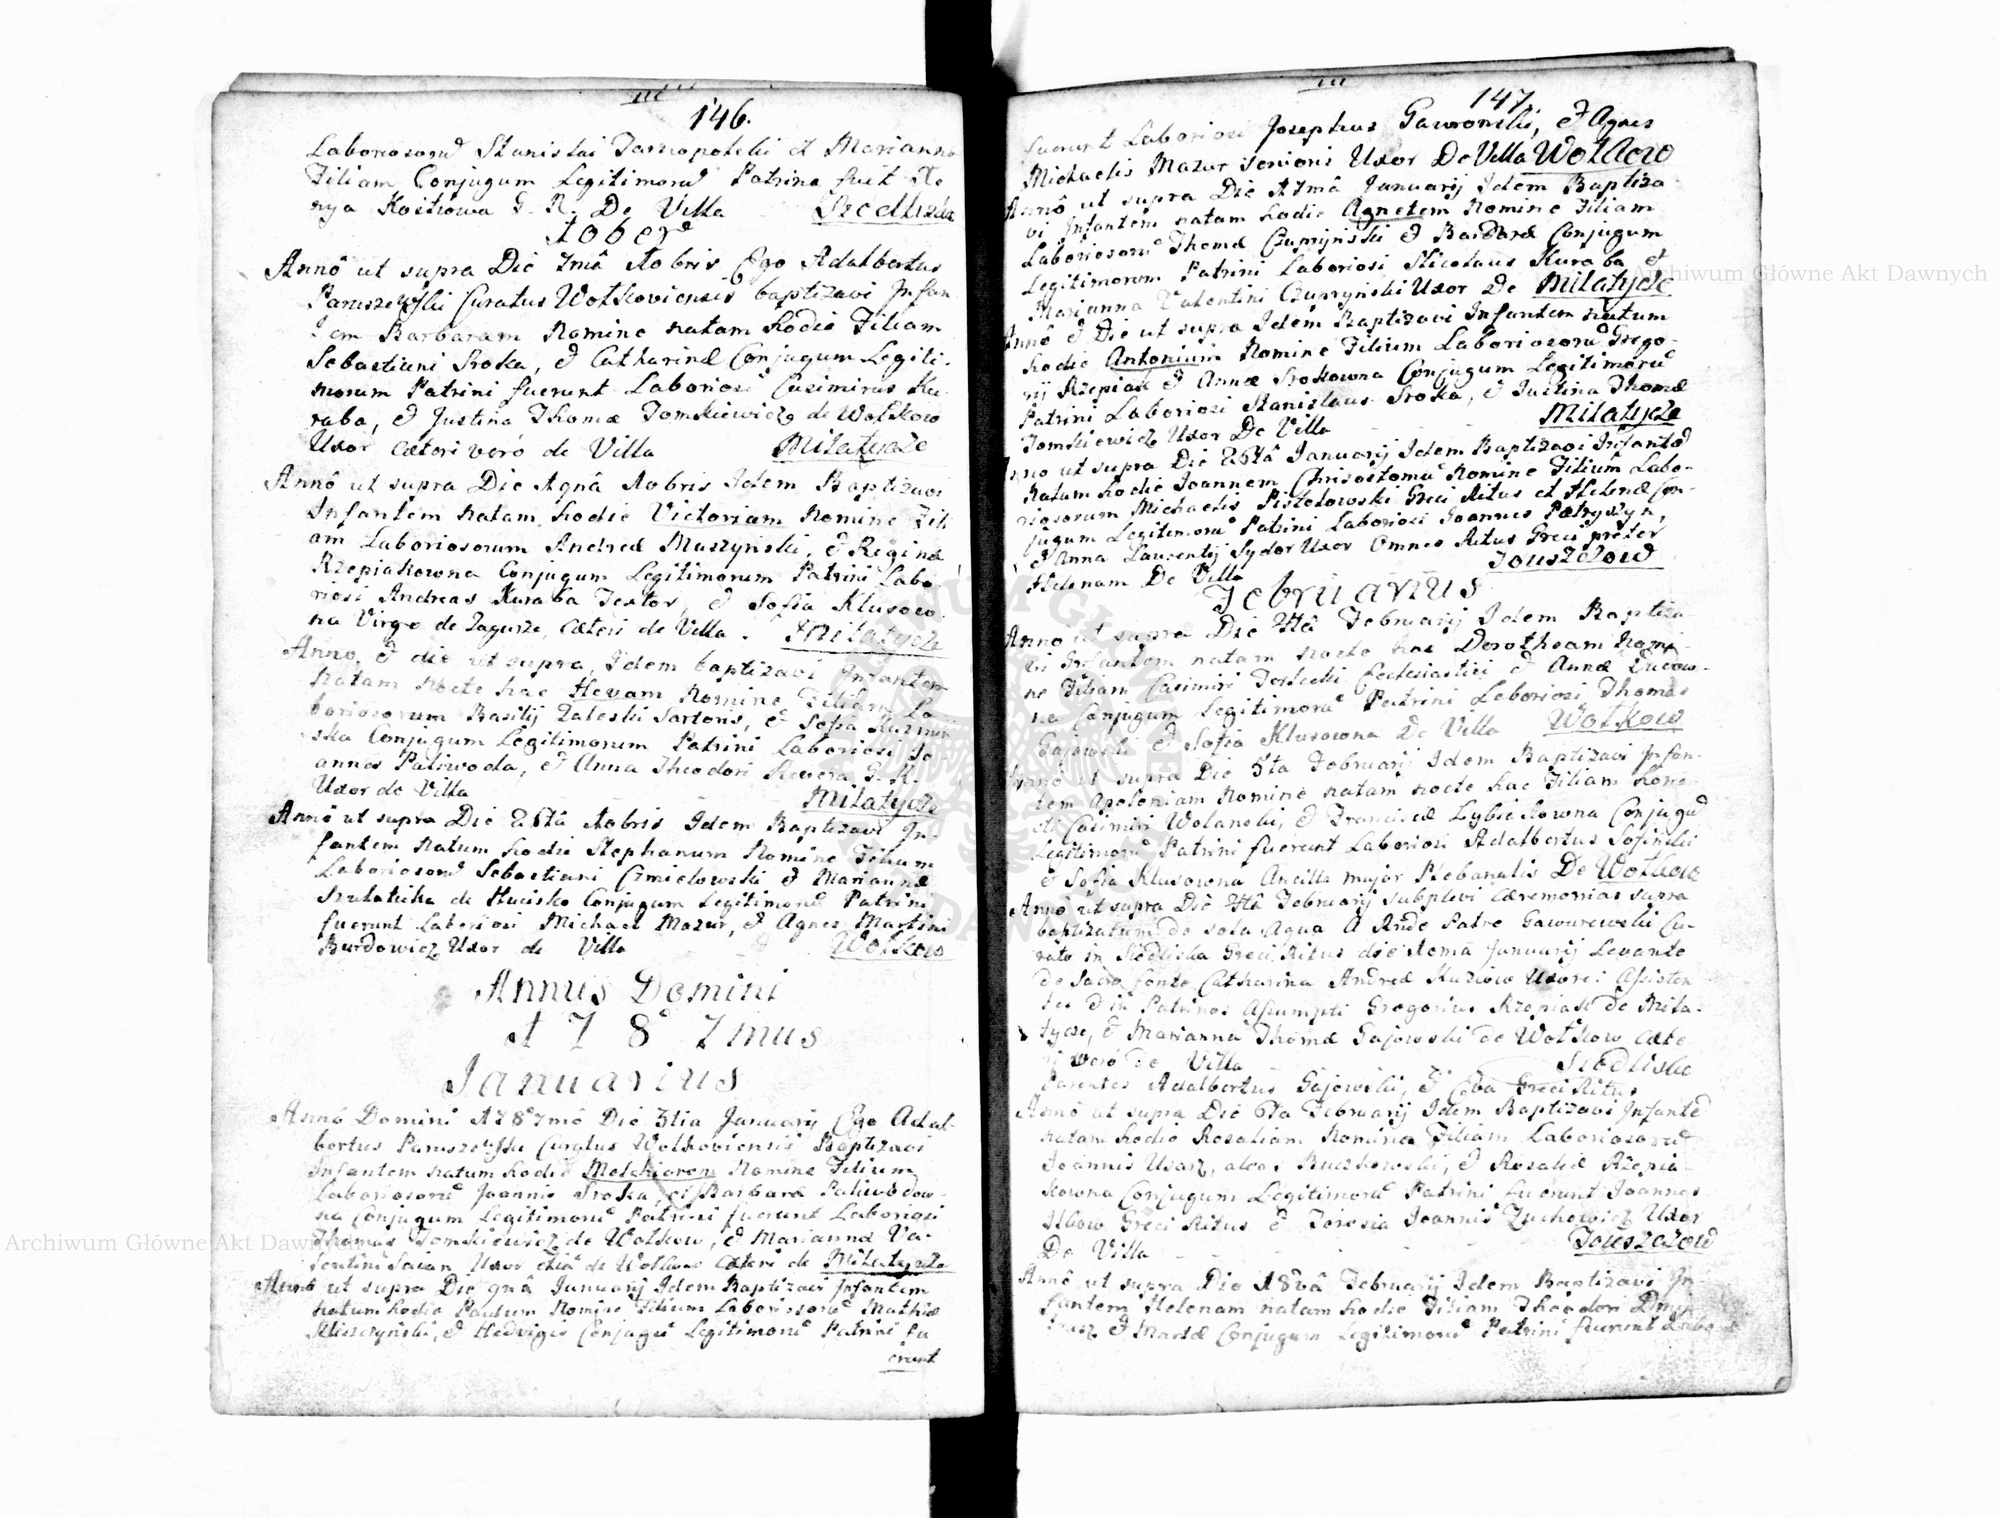 146.
Laboriosorũ Stanislai Tarnopolski et Marianna
Filiam Conjugum Legitimorũ Patrina fuit Xe
nya Kostiowa G. R. De Villa Siedliska
10ber
Annô ut supra Die 7mâ Xobris Ego Adalbertus
Paruszewski Curatus Wołkoviensis baptizavi Infan
tem Barbaram Nomine natam hodie Filiam
Sebastiani Sroka, et Catharinæ Conjugum Legiti-
morum Patrini fuerunt Laboriosi Casimirus Ku
raba, et Justina Thomæ Tomkiewicz de Wołkow
Uxor cæteri veró de Villa Milatycze
Annô ut supra Die Xobris Idem Baptizavi
Infantem natam hodie Victoriam Nomine Fili
am Laboriosorum Andreæ Muszyński, et Reginæ
Rzepiakowna Conjugum Legitimorum Patrini Labo
riosi Andreas Kuraba Textor, et Sofia Klusow
na Virgo de Zagurze, Cæteri de Villa. Milatycze
Anno, et die ut supra, Idem baptizavi Infantem
natam nocte hac Hevam Nomine Filiam La
boriosorum Basilij Zaleski Sartoris, et Sofia
ska Conjugum Legitimorum Patrini Laboriosi Jo
annes Paliwoda, et Anna Theodori Rewera G. R.
Uxor de Villa Milatycze
Annô ut supra Die 26tâ Xobris Idem Baptizavi In-
fantem natum hodie Stephanum Nomine Filium
Laboriosorũ Sebastiani Czmielowski et Mariannæ
Szulaticka de Hucisko Conjugum Legitimorũ Patrini
fuerunt Laboriosi Michael Mazur, et Agnes Martini
Burdowicz Uxor de Villa Wołkow
Annus Domini
1787mus
Januarius
Annô Domini 1787mô Die 3tia Januarij Ego Adal-
bertus Paruszewski Curatus Wołkoviensis Baptizavi
Infantem natum hodie Melchiorem Nomine Filium
Laboriosorũ Joannis Sroka, et Barbaræ Paliwodow-
na Conjugum Legitimorũ Patrini fuerunt Laboriosi
Thomas Tomkiewicz de Wołkow, et Marianna Va-
lentini Uxor de Wołkow cæteri de Milatycze
Annô ut supra Die 9nâ Januarij Idem Baptizavi Infantem
natum hodie Paulum Nomine Filium Laboriosorũ Mathiæ
et Hedvigis Conjugũ Legitimorũ Patrini fu
erunt
147.
fuerunt Laboriosi Josephus Gawronski, et Agnes
Michaelis Mazur senioris Uxor De Villa Wołkow
Annô ut supra Die 17mâ Januarij Idem Baptiza-
vi Infantem natam hodie Agnetem Nomine Filiam
Laboriosorũ Thomæ Czupryński et Barbaræ Conjugum
Legitimorum Patrini Laboriosi Nicolaus Kuraba et
Marianna Valentini Czupryński Uxor De Milatycze
Annô et Die ut supra Idem Baptizavi Infantem natum
hodie Antonium Nomine Filium Laboriosorũ Grego-
rij Rzepiak et Annæ Srokowna Conjugum Legitimorũ
Patrini Laboriosi Stanislaus Sroka, et Justina Thomæ
Tomkiewicz Uxor De Villa Milatycze
Anno ut supra Die 26tâ Januarij Idem Baptizavi Infantẽ
Natum hodie Joannem Chrisostomũ Nomine Filium Labo-
riosorum Michaelis Pistolowski Greci Ritus et Helenæ Con-
jugum Legitimorũ Patrini Laboriosi Joannes Patryszyn,
et Anna Laurentij Sydor Uxor Omnes Ritus Greci præter
Helenam De Villa Touszczow
Februarius
Anno ut supra Die 4tâ Februarij Idem Baptiza
vi Infantem natam nocte hac Dorotheam Nomi-
ne Filiam Casimiri Ecclesiastici et Annæ
na Conjugum Legitimorũ Patrini Laboriosi Thomas
Gajowski et Sofia Klusowna De Villa Wołkow
Annô ut supra Die 5ta Februarij Idem Baptizavi Infan-
tem Apoloniam Nomine natam nocte hac Filiam Hone-
sti Casimiri Wolanski, et Franciscæ Conjugũ
Legitimorũ Patrini fuerunt Laboriosi Adalbertus
et Sofia Klusowna Ancilla major Plebanalis De Wołkow
Annô ut supra Die 4tâ Februarij suplevi cæremonias supra
baptizatum de sola Aqua A Rndo Patre Gawurewski Cu-
rato in Siedliska Greci Ritus die Januarij Levante
de Sacro fonte Catharina Andreæ Kuziow Uxore: Asisten
tes et in Patrinos Assumpti Gregorius Rzepiak de Mila-
tycze, et Marianna Thomæ Gajowski de Wołkow cæte
ri veró de Villa Siedliska
Parentes Adalbertus Gajowski, et Eva Greci Ritus
Annô ut supra Die 6ta Februarij Idem Baptizavi Infantẽ
natam hodie Rosaliam Nomine Filiam Laboriosorũ
Joannis Usarz, alias Buczkowski, et Rosaliæ Rzepia-
kowna Conjugum Legitimorũ Patrini fuerunt Joannes
Greci Ritus et Teresia Joannis Żuchowicz Uxor
De Villa Touszczow
Annô ut supra Die 18vâ Februarij Idem Baptizavi In
fantem Helenam natam hodie Filiam Theodori
et Martæ Conjugum Legitimorũ Patrini fuerunt Labo
Archiwum Główne Akt Dawnych
Archiwum Główne Akt Dawnych
ARCHIWUM GŁÓWNE AKT DAWNYCH